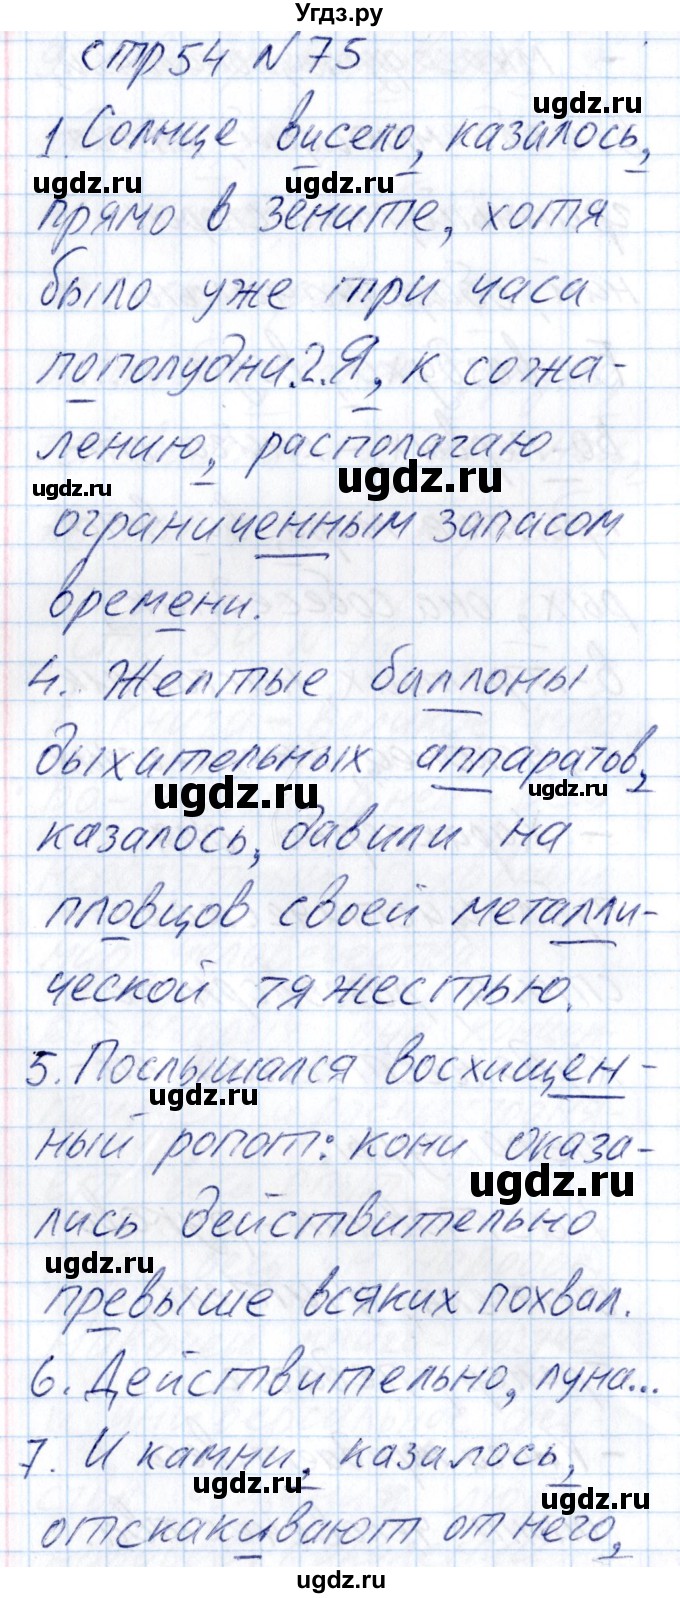 Угдз.ру
стр 54 № 75
ugdz.ru
1. Солнце висело, казалось,
ugdz.ru ugdz.ru
прямо в зените, хотя
было уже три часа
пополудни. 2. Я, к сожа-
лению, располагаю
ugdz.ru ugdz.ru
ограниченным запасом
времени.
4. Желтые баллоны
дыхательных аппаратов,
ugdz.ru ugdz.ru
казалось, давили на
пловцов своей металли-
ческой тяжестью.
5. Послышался восхищен-
ugdz.ru
ный ропот: кони оказа-
ugdz.ru
лись действительно
ugdz.ru
превыше всяких похвал.
6. Действительно, луна...
7. И камни, казалось,
ugdz.ru ugdz.ru
отскакивают от него,
ugdz.ru